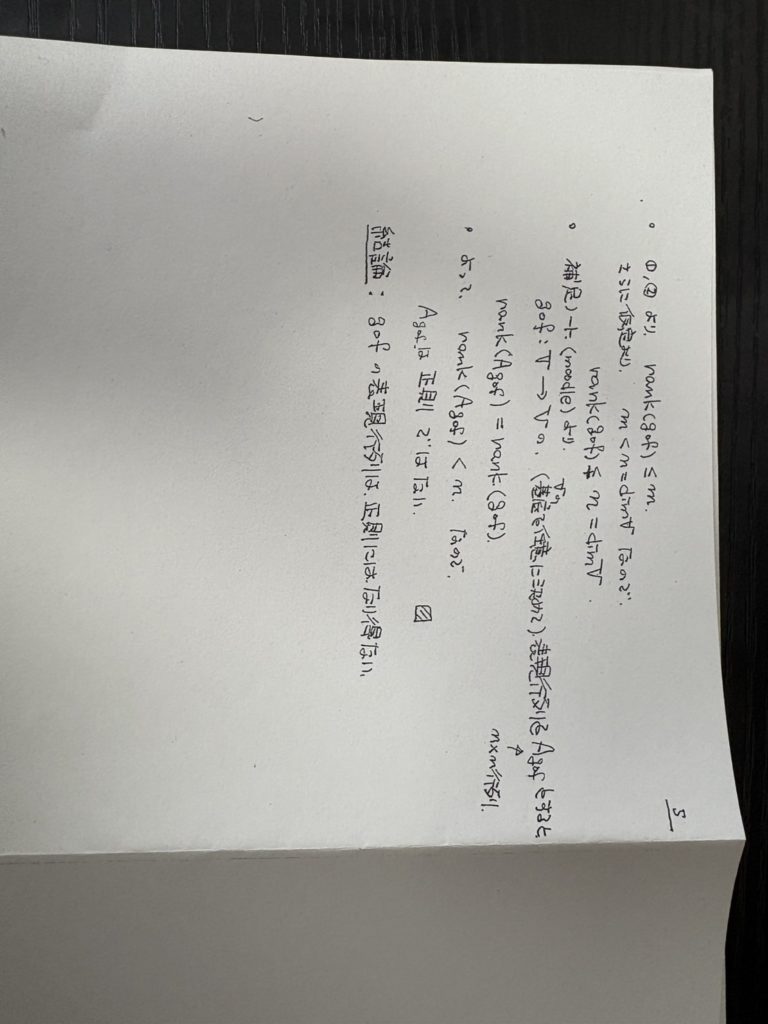 5
• ①,② より, rank(g∘f) ≤ m.
さらに仮定より, m < n = dim V なので,
rank(g∘f) ≨ n = dim V.
• 補足ノート (moodle) より.
g∘f : V → V の, (Vの基底を任意に決めて) 表現行列を A_{g∘f} とすると
n×n行列.
rank(A_{g∘f}) = rank(g∘f).
• よって, rank(A_{g∘f}) < n. なので,
A_{g∘f} は 正則 ではない. ▨
結論 : g∘f の表現行列は, 正則にはなり得ない.